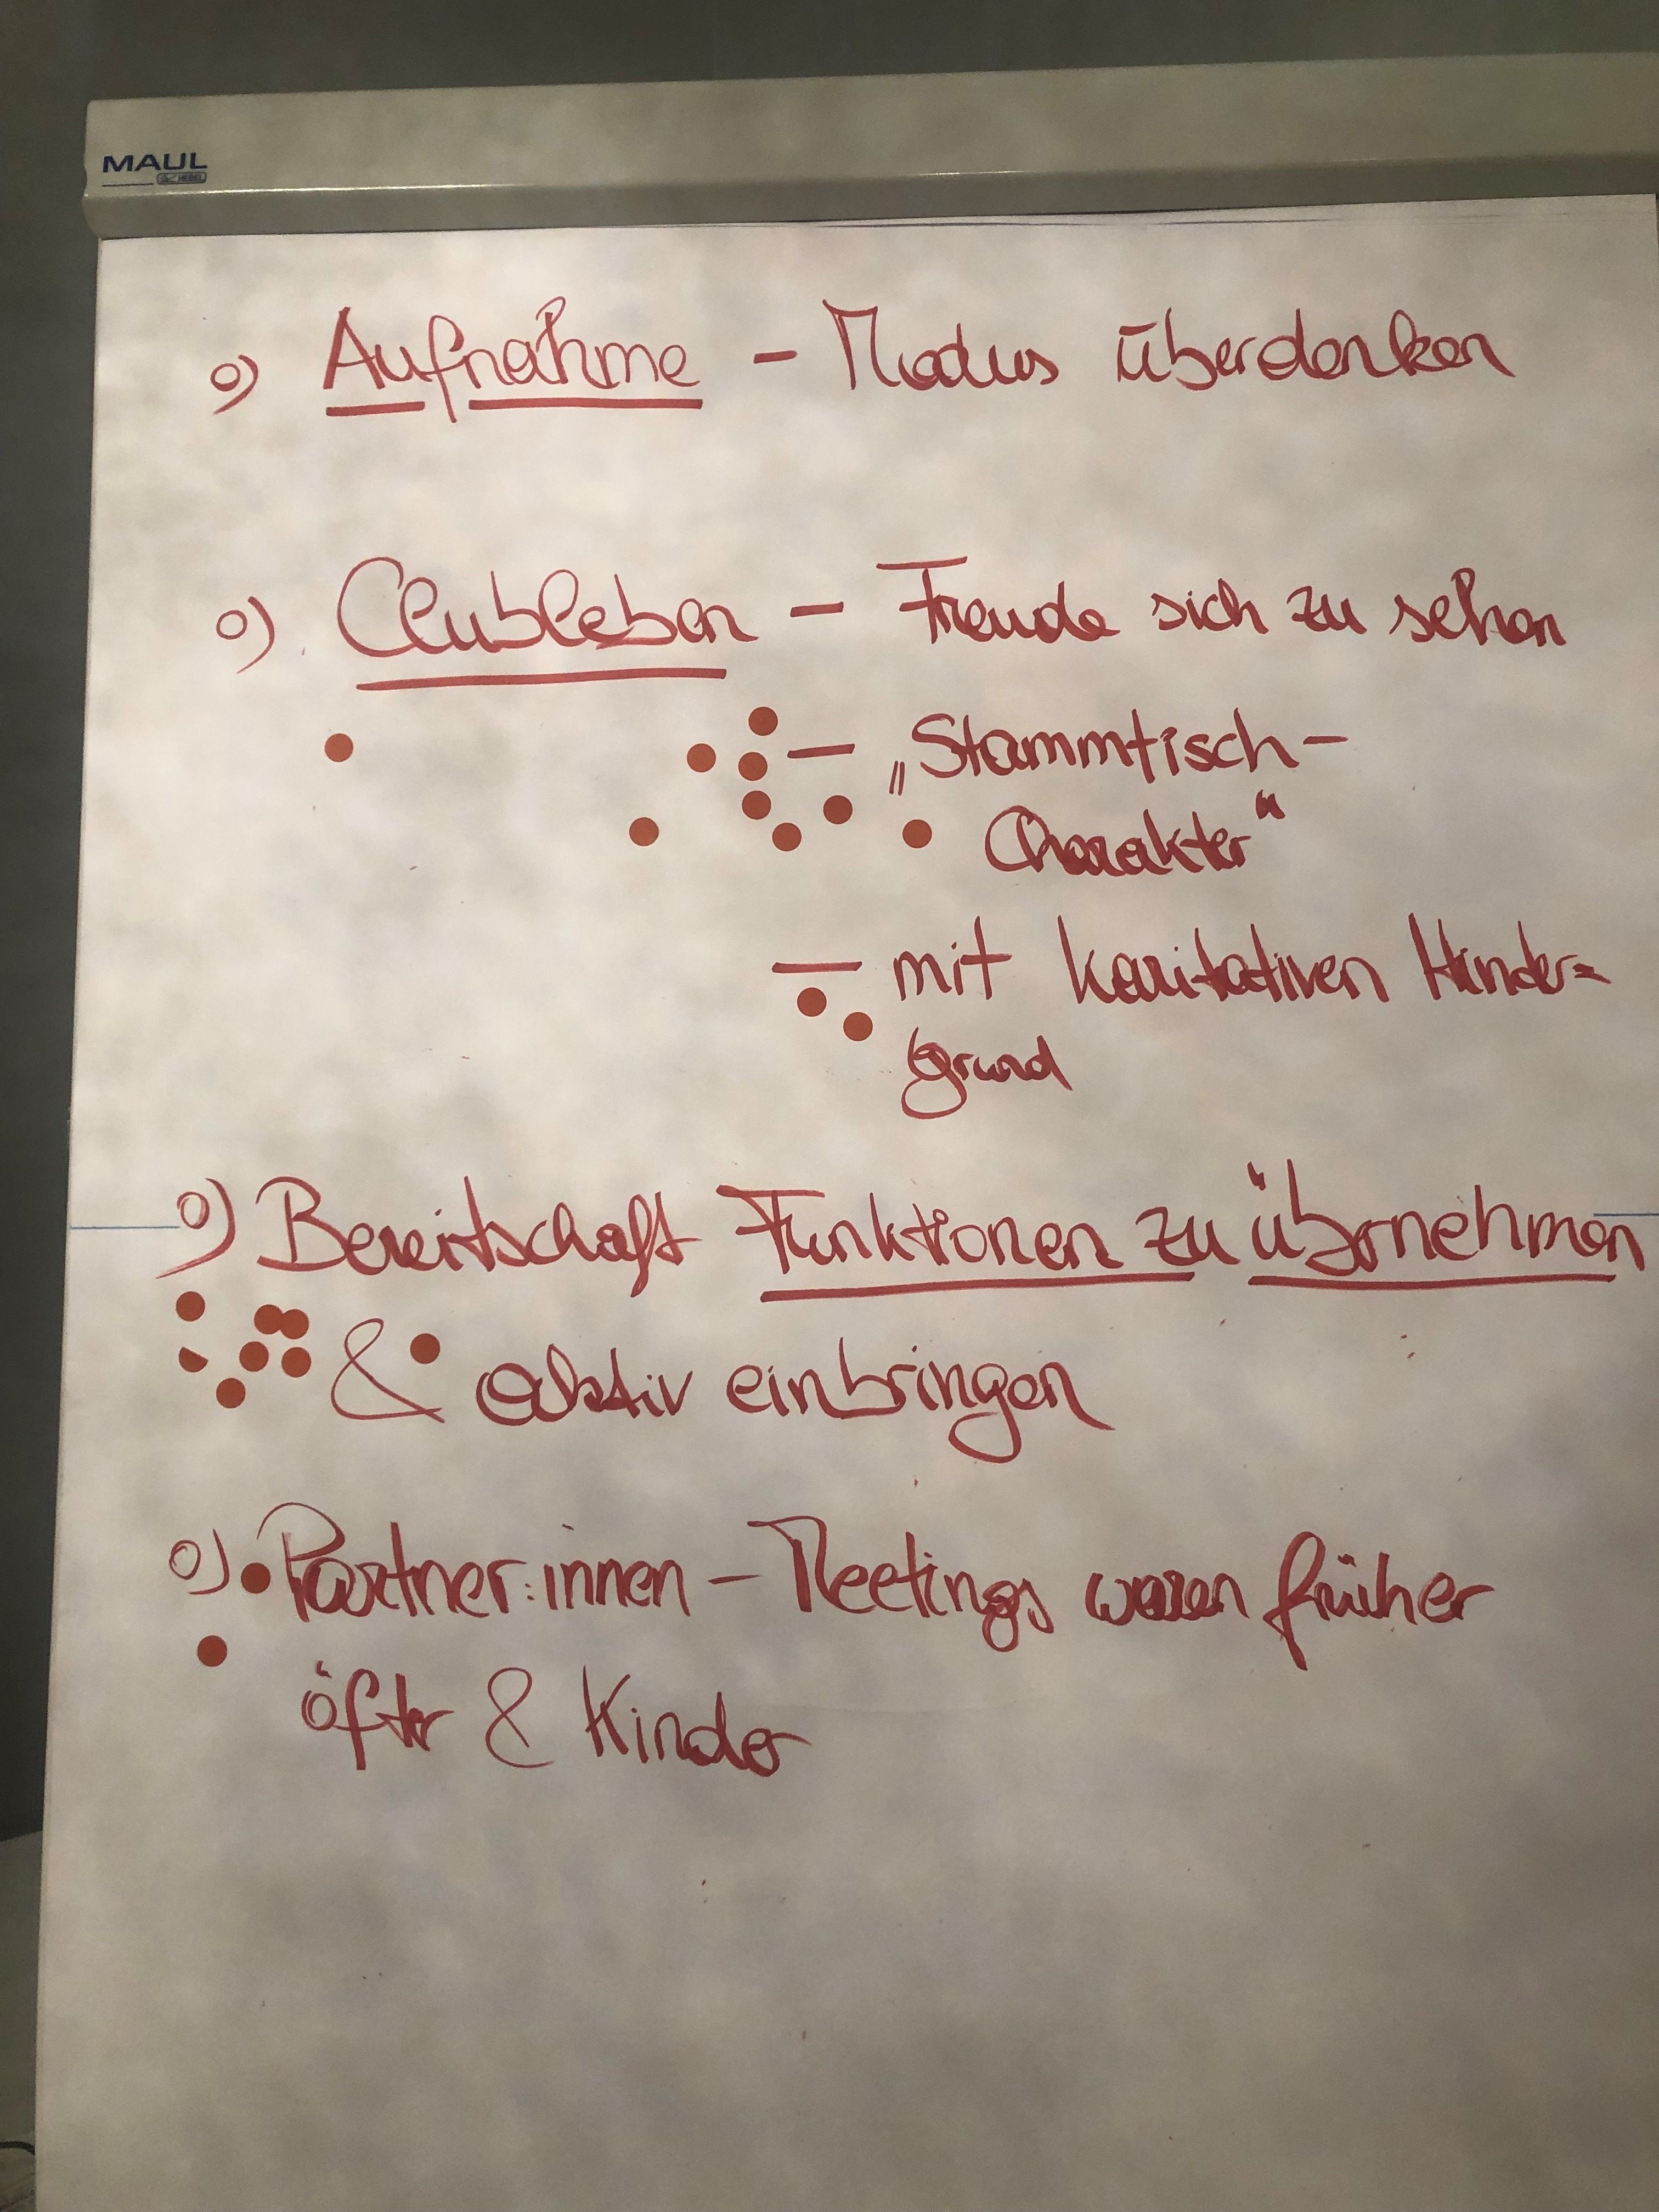 MAUL
HEBEL
o) Aufnahme – Modus überdenken
o) Clubleben – Freude sich zu sehen
– „Stammtisch-
Charakter“
– mit karitativen Hinder=
grund
o) Bereitschaft Funktionen zu übernehmen
& aktiv einbringen
o) Partner:innen – Meetings waren früher
öfter & Kinder